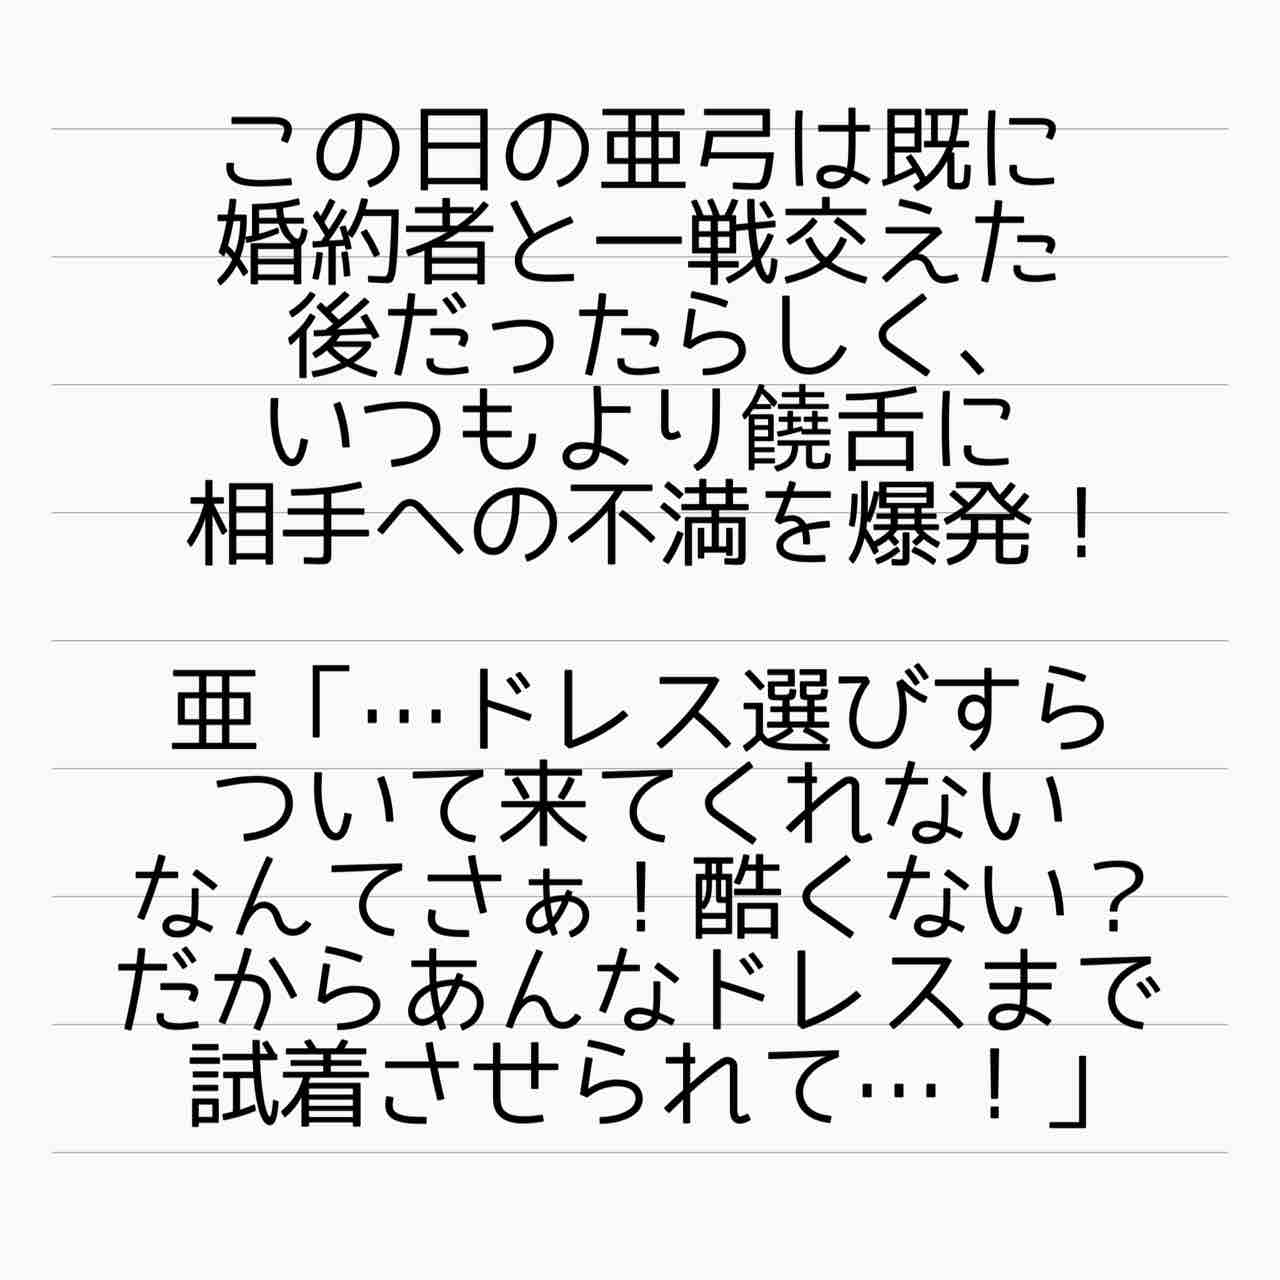 この日の亜弓は既に
婚約者と一戦交えた
後だったらしく、
いつもより饒舌に
相手への不満を爆発！
亜「…ドレス選びすら
ついて来てくれない
なんてさぁ！酷くない？
だからあんなドレスまで
試着させられて…！」